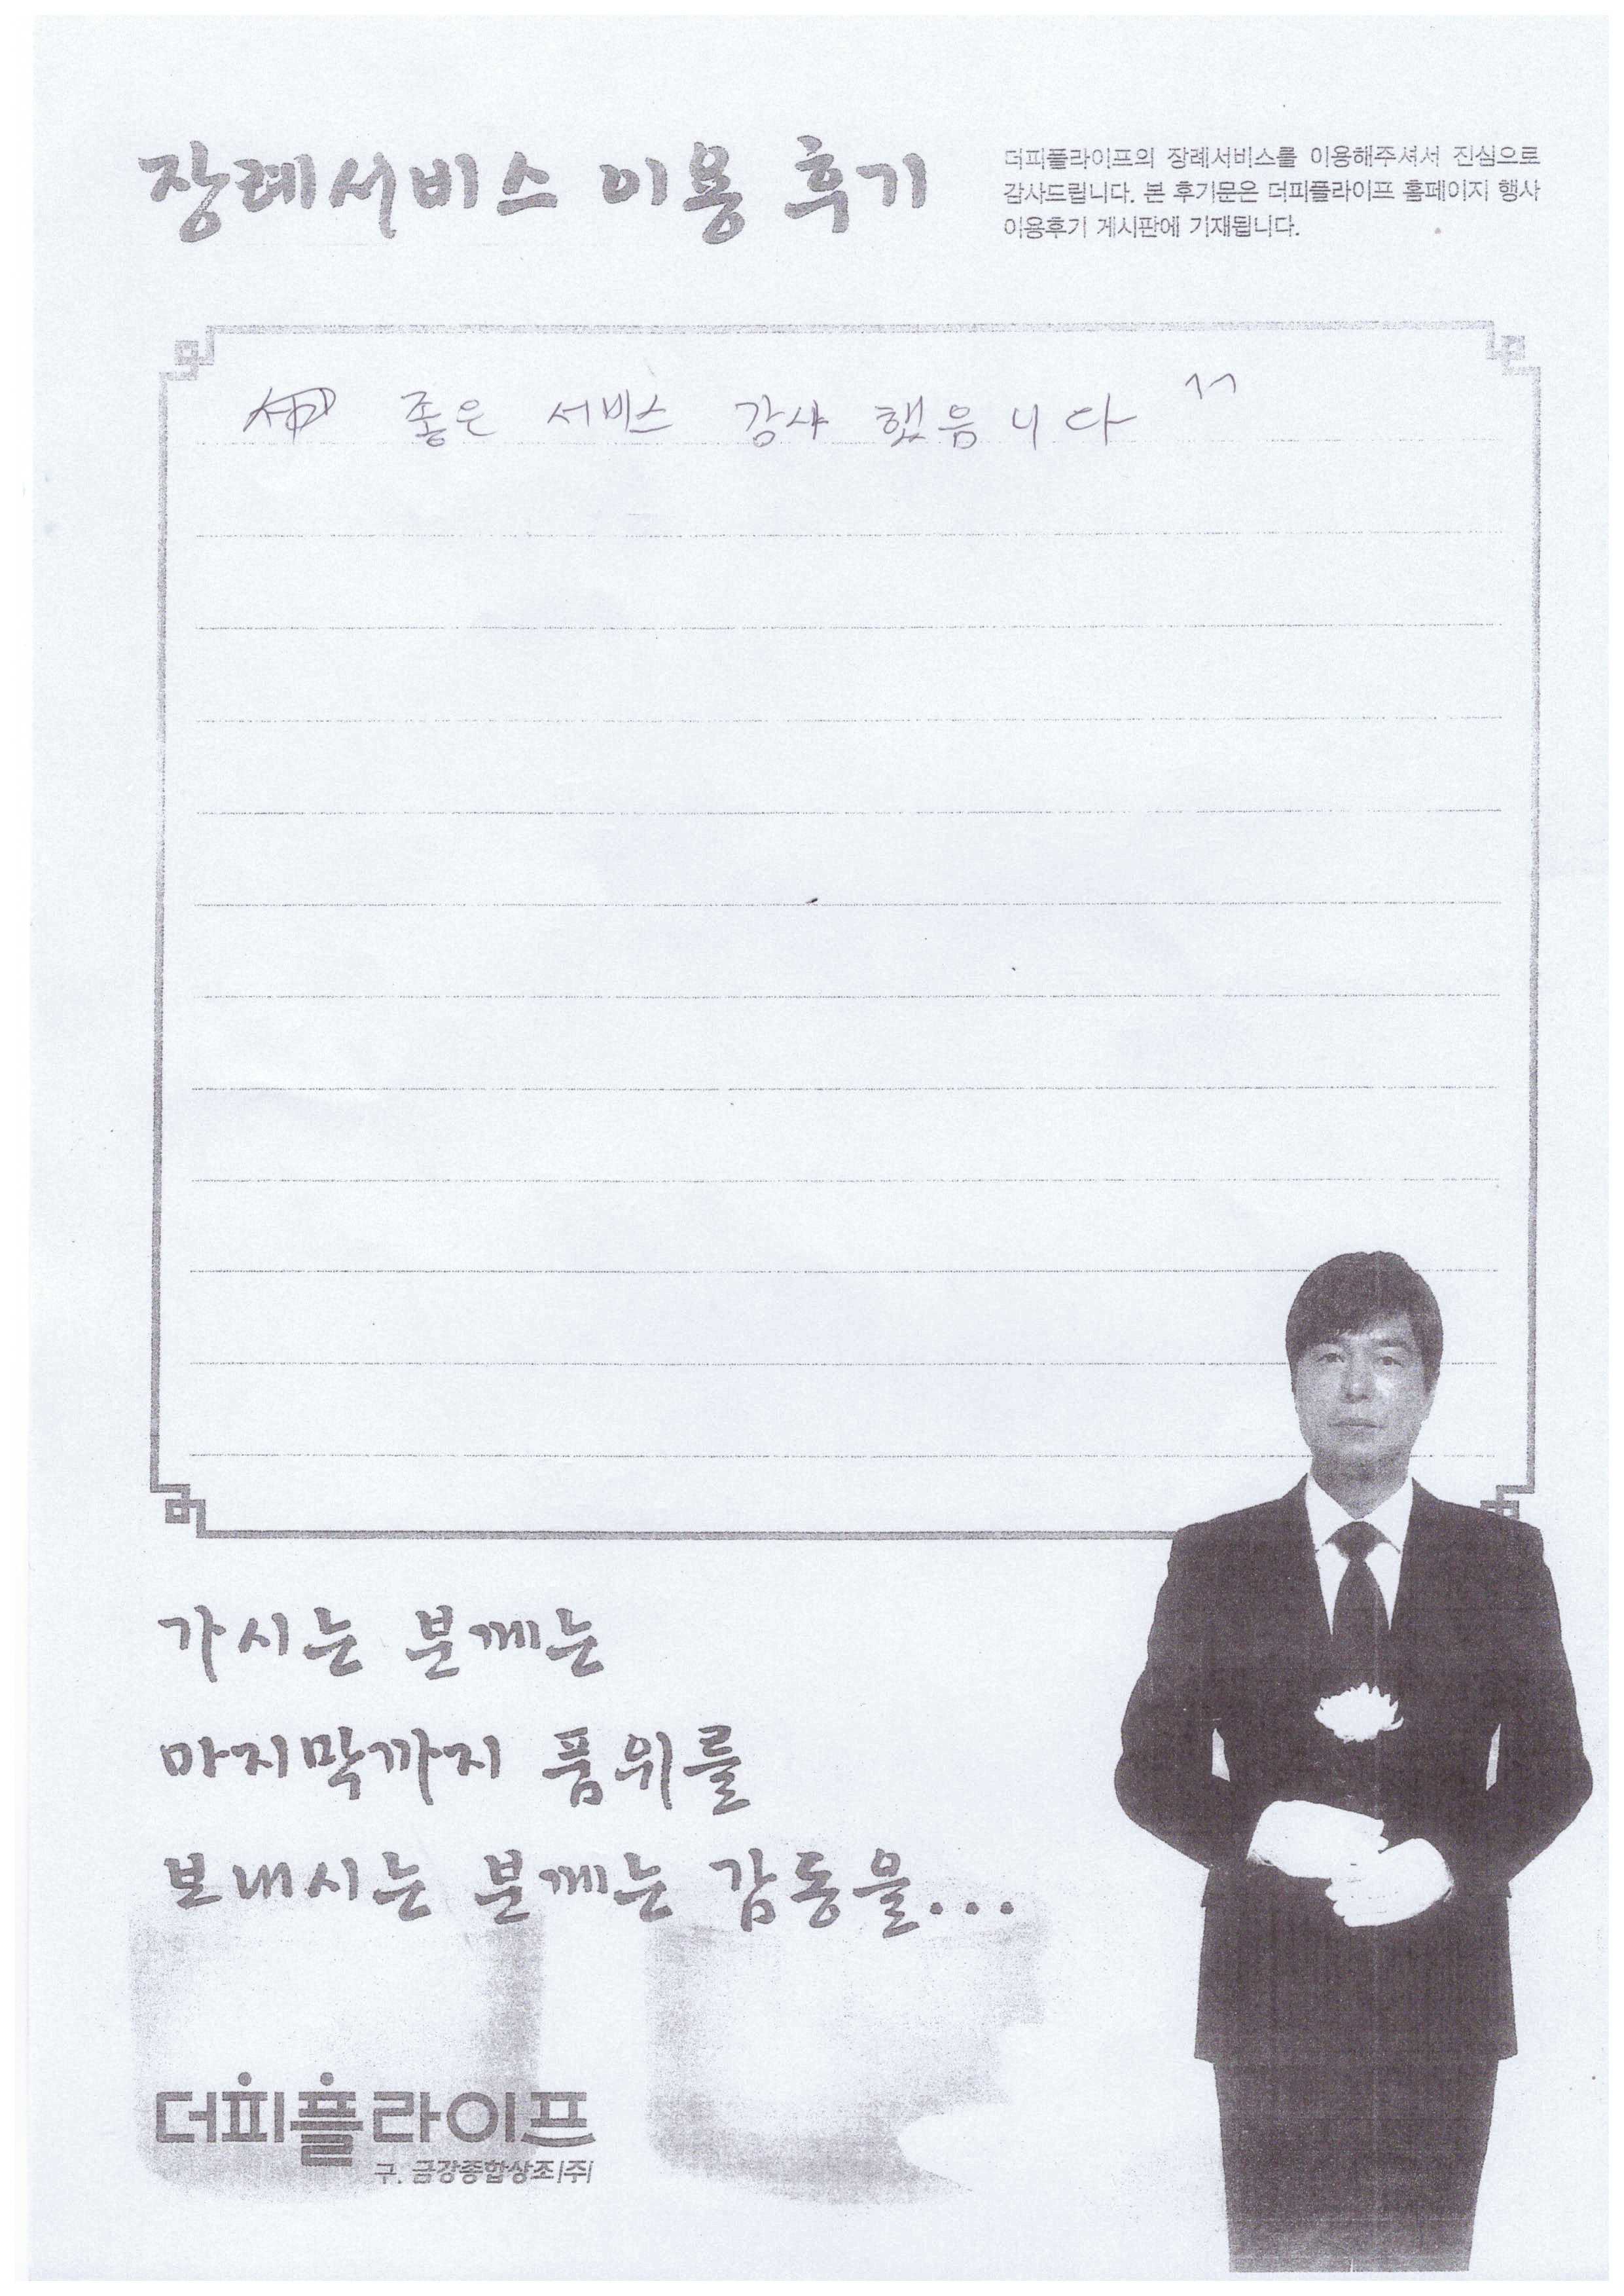 장례서비스 이용 후기
더피플라이프의 장례서비스를 이용해주셔서 진심으로
감사드립니다. 본 후기문은 더피플라이프 홈페이지 행사
이용후기 게시판에 기재됩니다.
좋은 서비스 감사 했음니다 ^^
가시는 분께는
마지막까지 품위를
보내시는 분께는 감동을...
더피플라이프
구. 금강종합상조(주)